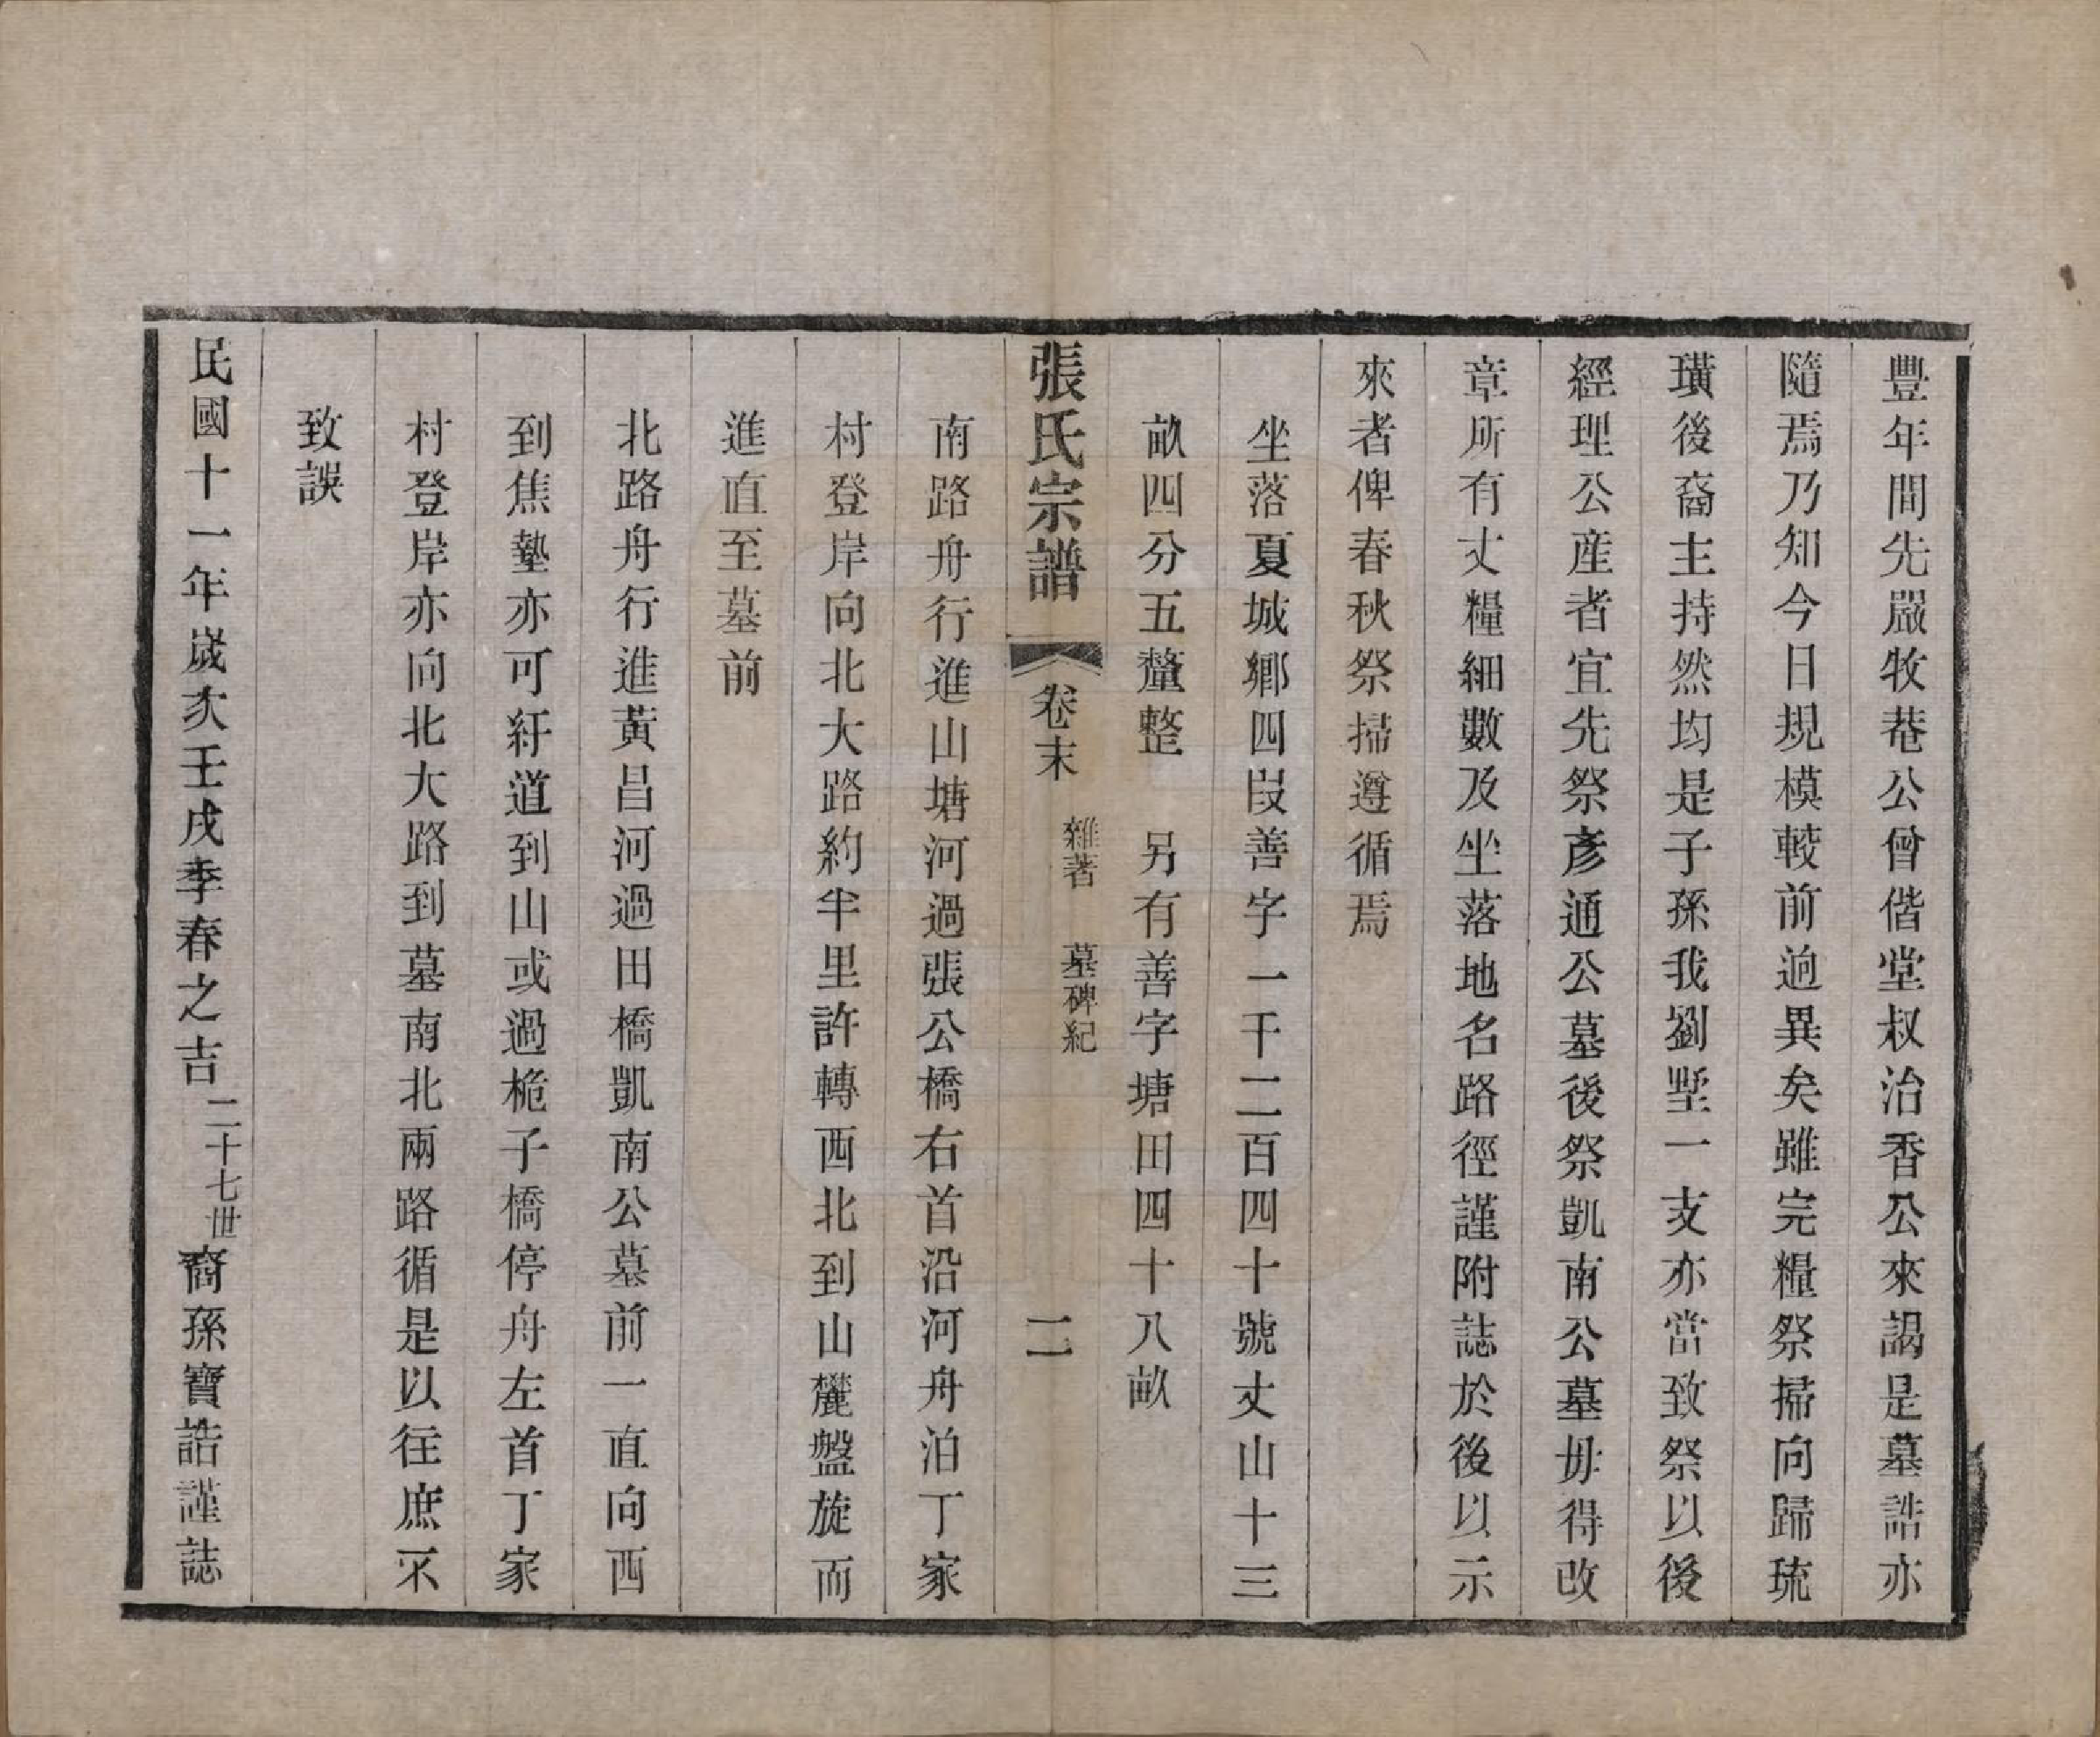 豐年間先嚴牧菴公曾偕堂叔治香公來謁是墓誥亦
隨焉乃知今日規模較前逈異矣雖完糧祭掃向歸琉
璜後裔主持然均是子孫我劉墅一支亦當致祭以後
經理公産者宜先祭彥通公墓後祭凱南公墓毋得改
章所有丈糧細數及坐落地名路徑謹附誌於後以示
來者俾春秋祭掃遵循焉
坐落夏城鄉四段善字一千二百四十號丈山十三
畝四分五釐整 另有善字塘田四十八畝
張氏宗譜 卷末 雜著 墓碑紀 二
南路舟行進山塘河過張公橋右首沿河舟泊丁家
村登岸向北大路約半里許轉西北到山麓盤旋而
進直至墓前
北路舟行進黃昌河過田橋凱南公墓前一直向西
到焦墊亦可紆道到山或過桅子橋停舟左首丁家
村登岸亦向北大路到墓南北兩路循是以往庶不
致誤
民國十一年歲次壬戌季春之吉二十七世裔孫寶誥謹誌